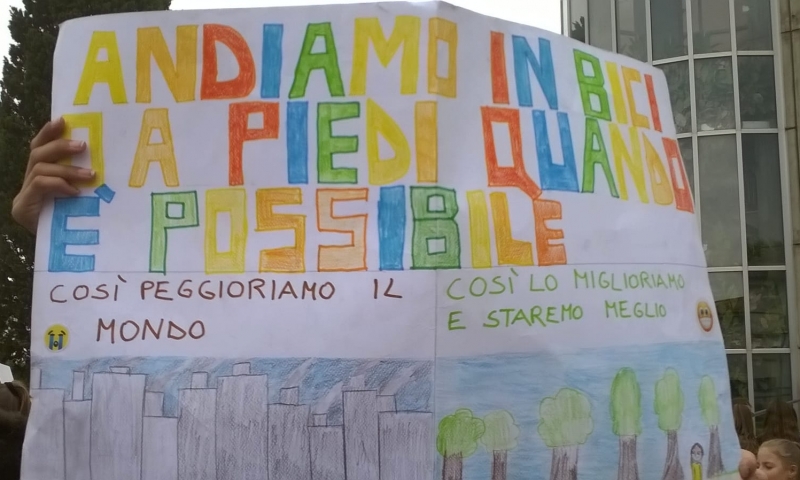 ANDIAMO IN BICI
O A PIEDI QUANDO
È POSSIBILE
COSÌ PEGGIORIAMO IL
MONDO
COSÌ LO MIGLIORIAMO
E STAREMO MEGLIO